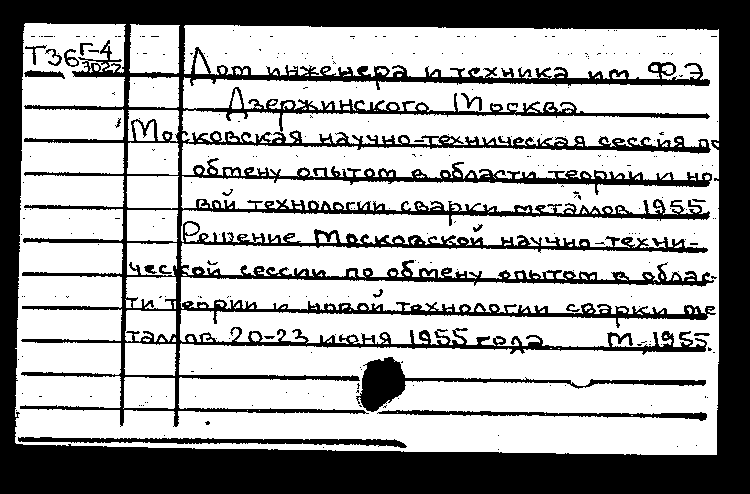 Т36 Г-4/3022 Дом инженера и техника им. Ф.Э.
Дзержинского. Москва.
Московская научно-техническая сессия по
обмену опытом в области теории и но-
вой технологии сварки металлов 1955
Решение Московской научно-техни-
ческой сессии по обмену опытом в облас-
ти теории и новой технологии сварки ме
таллов 20-23 июня 1955 года М., 1955.